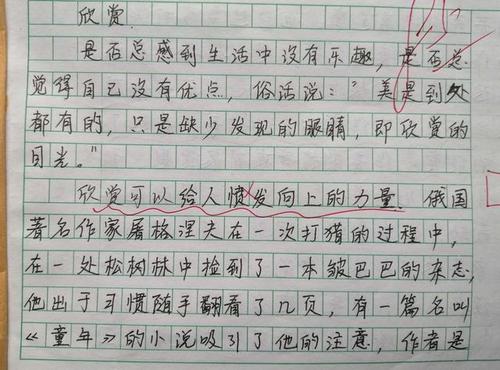 欣赏
是否总感到生活中没有乐趣，是否总
觉得自己没有优点，俗话说：“美是到处
都有的，只是缺少发现的眼睛，即欣赏的
目光。”
欣赏可以给人愤发向上的力量．俄国
著名作家屠格涅夫在一次打猎的过程中，
在一处松树林中捡到了一本皱巴巴的杂志，
他出于习惯随手翻看了几页，有一篇名叫
《童年》的小说吸引了他的注意，作者是